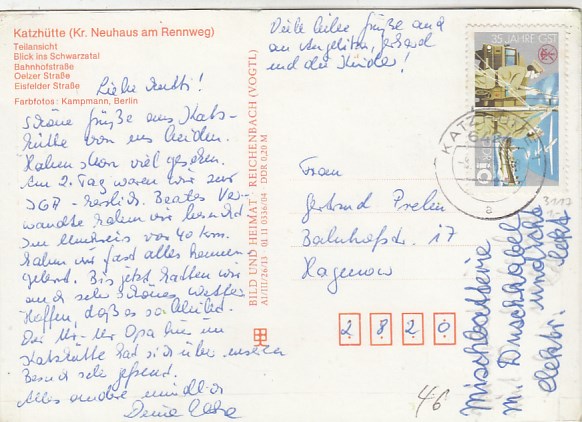 Katzhütte (Kr. Neuhaus am Rennweg)
Teilansicht
Blick ins Schwarzatal
Bahnhofstraße
Oelzer Straße
Eisfelder Straße
Farbfotos: Kampmann, Berlin
Liebe Mutti!
Schöne Grüße aus Katz-
hütte von uns beiden.
Haben schon viel gesehen.
Am 2. Tag waren wir zur
IGA - herrlich. Beates Ver-
wandte haben wir besucht
Im Umkreis von 40 km
haben wir fast alles kennen
gelernt. Bis jetzt hatten wir
auch sehr schönes Wetter
Hoffen, daß es so bleibt.
Der Ur-Ur Opa hier in
Katzhütte hat sich über unseren
Besuch sehr gefreut.
Alles andere mündlich
Deine
BILD UND HEIMAT REICHENBACH (VOGTL)
A1/III/26/13 01 11 0356/04 DDR 0,20 M
Viele liebe Grüße auch
an Angelika, Gerhard
und die Kinder!
35 JAHRE GST
KATZHÜTTE
a
Frau
Gertrud
Bahnhofstr. 17
Hagenow
2820
Mischbatterie
m. Duschkabel
elektr.
46